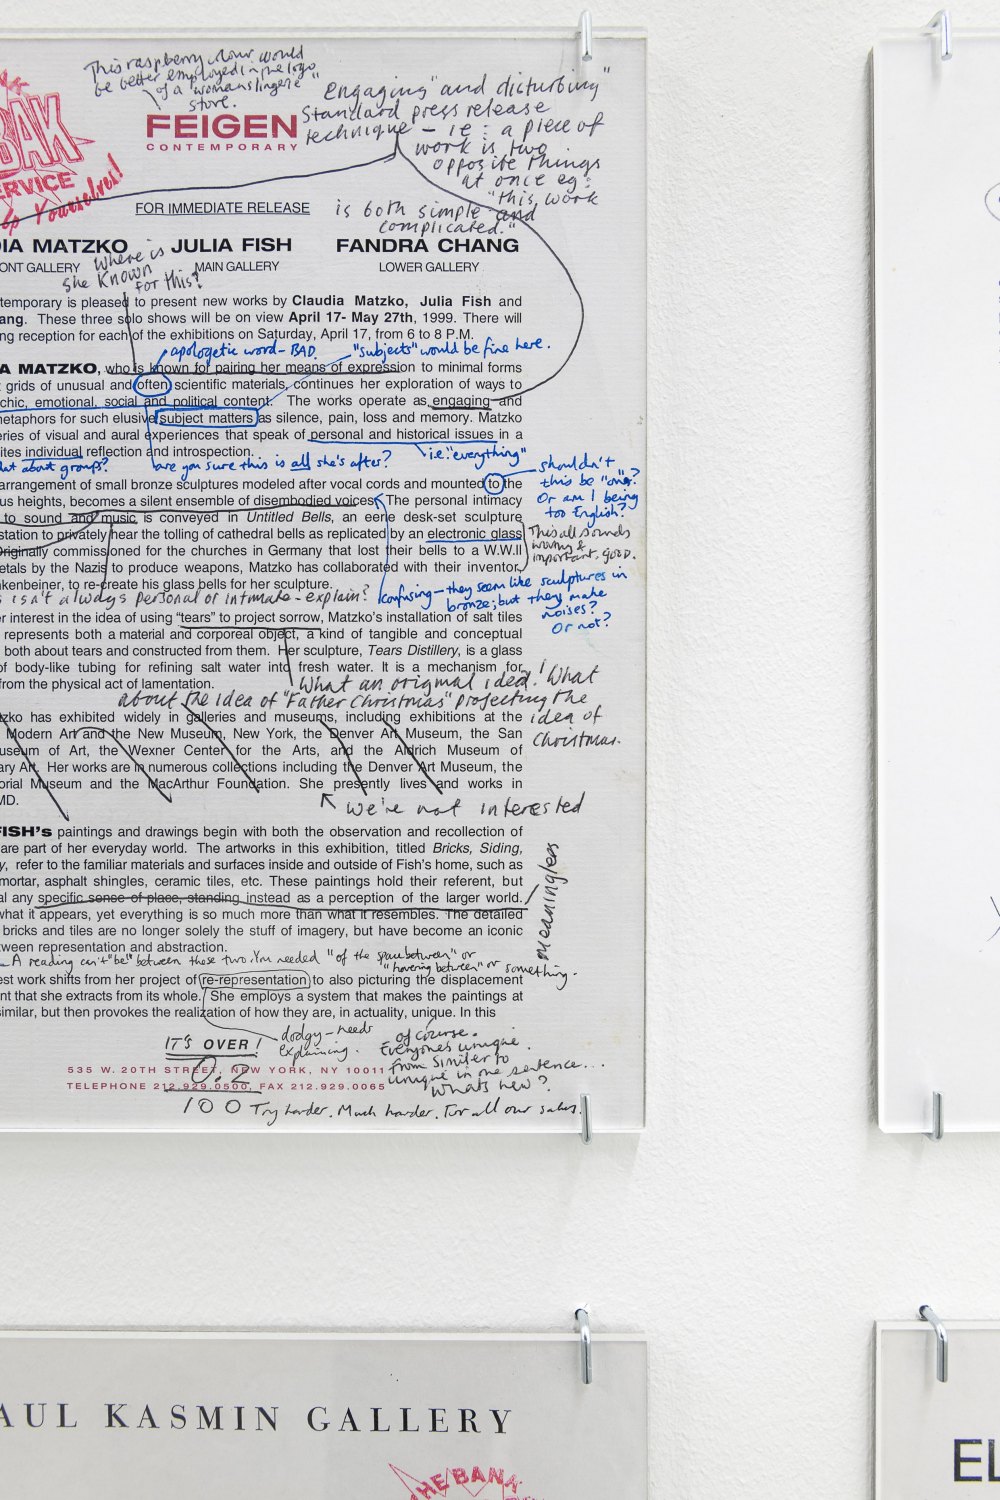 This raspberry colour would
be better employed in the logo
of a womans lingerie
store.
BAK
SERVICE
Yourselves!
FEIGEN
CONTEMPORARY
"engaging" and disturbing"
Standard press release
technique - ie: a piece of
work is two
opposite things
at once eg:
"this work
is both simple and
complicated."
FOR IMMEDIATE RELEASE
DIA MATZKO JULIA FISH FANDRA CHANG
ONT GALLERY MAIN GALLERY LOWER GALLERY
Where is
she known
for this?
temporary is pleased to present new works by Claudia Matzko, Julia Fish and
ang. These three solo shows will be on view April 17- May 27th, 1999. There will
ng reception for each of the exhibitions on Saturday, April 17, from 6 to 8 P.M.
apologetic word - BAD. "subjects" would be fine here.
A MATZKO, who is known for pairing her means of expression to minimal forms
grids of unusual and often scientific materials, continues her exploration of ways to
chic, emotional, social and political content. The works operate as engaging and
metaphors for such elusive subject matters as silence, pain, loss and memory. Matzko
eries of visual and aural experiences that speak of personal and historical issues in a
ites individual reflection and introspection.
about groups? are you sure this is all she's after? i.e. "everything"
shouldn't
this be "one"?
Or am I being
too English?
arrangement of small bronze sculptures modeled after vocal cords and mounted to the
us heights, becomes a silent ensemble of disembodied voices. The personal intimacy
to sound and music is conveyed in Untitled Bells, an eerie desk-set sculpture
station to privately hear the tolling of cathedral bells as replicated by an electronic glass
Originally commissioned for the churches in Germany that lost their bells to a W.W.II
etals by the Nazis to produce weapons, Matzko has collaborated with their inventor,
nkenbeiner, to re-create his glass bells for her sculpture.
This all sounds
worthy &
important, good.
isn't always personal or intimate - explain?
confusing - they seem like sculptures in
bronze; but they make
noises?
Or not?
er interest in the idea of using "tears" to project sorrow, Matzko's installation of salt tiles
represents both a material and corporeal object, a kind of tangible and conceptual
both about tears and constructed from them. Her sculpture, Tears Distillery, is a glass
of body-like tubing for refining salt water into fresh water. It is a mechanism for
from the physical act of lamentation.
What an original idea! What
about the idea of "Father Christmas" projecting the
idea of
Christmas.
tzko has exhibited widely in galleries and museums, including exhibitions at the
Modern Art and the New Museum, New York, the Denver Art Museum, the San
useum of Art, the Wexner Center for the Arts, and the Aldrich Museum of
ary Art. Her works are in numerous collections including the Denver Art Museum, the
orial Museum and the MacArthur Foundation. She presently lives and works in
MD.
we're not interested
FISH's paintings and drawings begin with both the observation and recollection of
are part of her everyday world. The artworks in this exhibition, titled Bricks, Siding,
y, refer to the familiar materials and surfaces inside and outside of Fish's home, such as
mortar, asphalt shingles, ceramic tiles, etc. These paintings hold their referent, but
al any specific sense of place, standing instead as a perception of the larger world.
what it appears, yet everything is so much more than what it resembles. The detailed
bricks and tiles are no longer solely the stuff of imagery, but have become an iconic
tween representation and abstraction.
meaningless
A reading can't "be" between these two. You needed "of the space between" or
"hovering between" or something.
est work shifts from her project of re-representation to also picturing the displacement
nt that she extracts from its whole. She employs a system that makes the paintings at
similar, but then provokes the realization of how they are, in actuality, unique. In this
IT'S OVER!
dodgy - needs
explaining.
of course.
Everyones unique.
From similar to
unique in one sentence...
whats new?
535 W. 20TH STREET, NEW YORK, NY 10011
TELEPHONE 212.929.0500, FAX 212.929.0065
0.2
100 Try harder. Much harder. For all our sakes.
AUL KASMIN GALLERY
THE BANK
EL